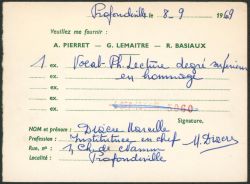 Profondeville le 8-9 1969
Veuillez me fournir :
A. PIERRET — G. LEMAITRE — R. BASIAUX
1 ex. Vocab. Ph. Lecture degré supérieur
ex. en hommage
ex.
ex.
ex.
Signature,
NOM et prénom : Marcelle
Profession : Institutrice en chef
Rue, n° :
Localité : Profondeville